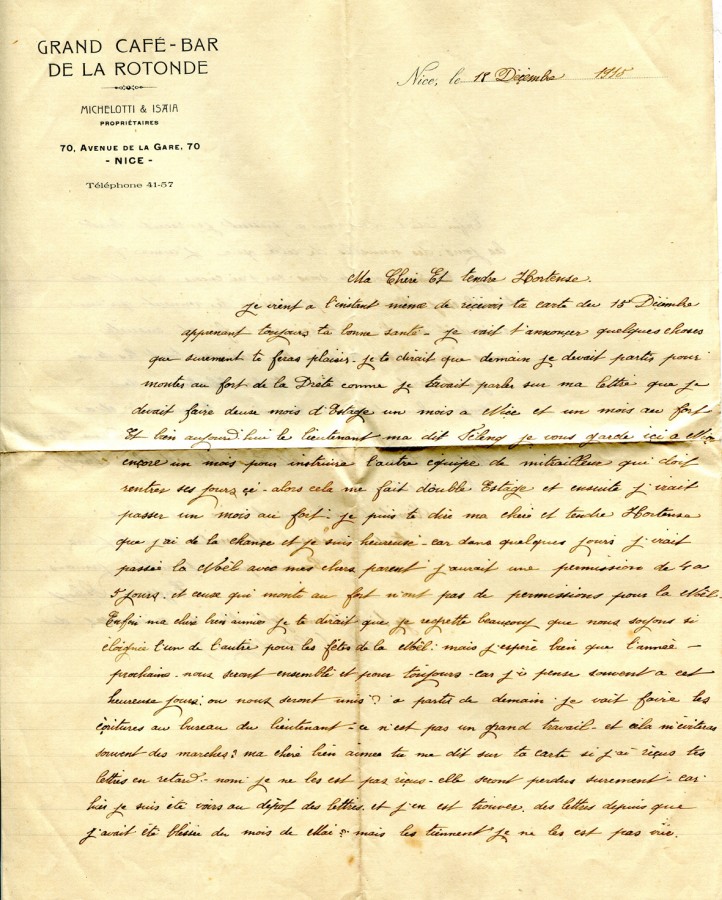 GRAND CAFÉ-BAR
DE LA ROTONDE
MICHELOTTI & ISAIA
PROPRIÉTAIRES
70, AVENUE DE LA GARE, 70
- NICE -
Téléphone 41-57
Nice, le 18 Décembre 1915
Ma Cheré Et tendre Hortense.
je vient a l'instant même de reçevoir ta carte du 15 Décembre
apprenant toujours ta bonne santé - je vait t'annonçer quelques choses
que surement te feras plaisir - je te dirait que demain je devait partir pour
monter au fort de la Drète comme je t'avait parler sur ma lettre que je
devait faire deux mois d'Estage un mois a Nice et un mois au fort
Et bien aujourd'hui le lieutenant ma dit Féleng je vous garde ici a Nice
encore un mois pour instruire l'autre équipe de mitrailleur qui doit
rentrer ses jours çi - alors cela me fait double Estage et ensuite j'irait
passer un mois au fort - je puis te dire ma chéré et tendre Hortense
que j'ai de la chance et je suis heureuse car dans quelques jours j'irait
passée la Nöel avec mes chers parent j'aurait une permission de 4 a
5 jours. et ceux qui monte au fort n'ont pas de permissions pour la Nöel.
Enfin ma chéré bien aimée je te dirait que je regrette beaucoup que nous soyons si
éloignée l'un de l'autre pour les fêtes de la Nöel: mais j'espère bien que l'année -
prochaine. nous seront ensemble et pour toujours - car je pense souvent a cet
heureuse jours: ou nous seront unis a partir de demain je vait faire les
écritures au bureau du lieutenant - ce n'est pas un grand travail - et cela m'éviteras
souvent des marches; ma chéré bien aimée tu me dit sur ta carte si j'ai reçus tes
lettres en retard - non: je ne les est pas reçus - elle seront perdus surement - car
hier je suis été voirs au dépot des lettres. et j'en est trouver. des lettres depuis que
j'avait été blessée du mois de Mai: mais les tiennent je ne les est pas vue.